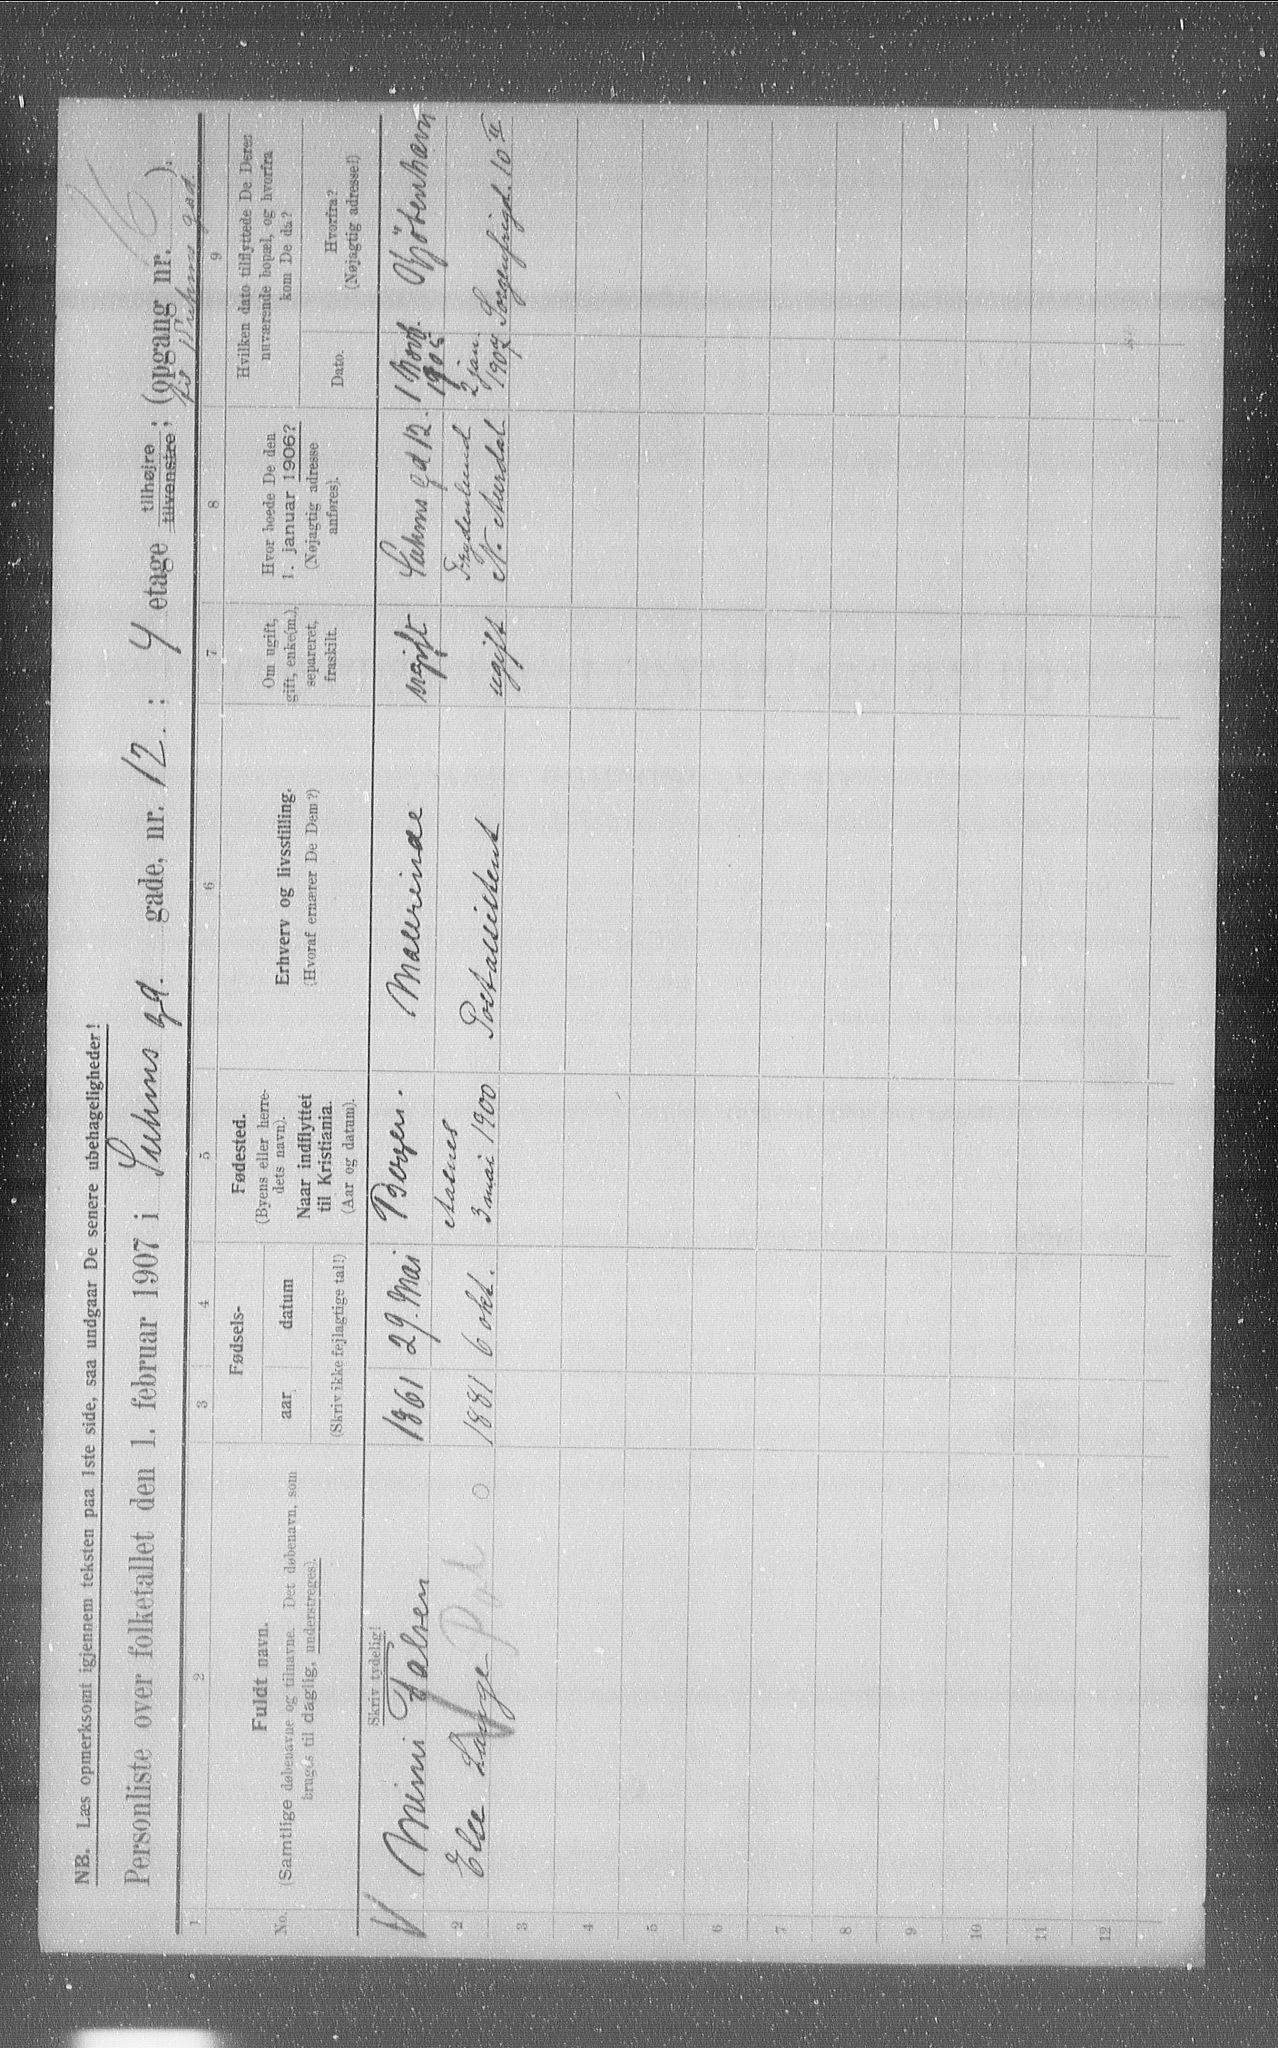 NB. Læs opmerksomt igjennem teksten paa 1ste side, saa undgaar De senere ubehageligheder!
Personliste over folketallet den 1. februar 1907 i Suhms gd. gade, nr. 12. ; 4 etage tilhøjre tilvenstre ; (opgang nr. ).
1 2 3 4 5 6 7 8 9
No.
Fuldt navn.
(Samtlige døbenavne og tilnavne. Det døbenavn, som
bruges til daglig, understreges).
Fødsels-
aar datum
(Skriv ikke fejlagtige tal!)
Fødested.
(Byens eller herre-
dets navn).
Naar indflyttet
til Kristiania.
(Aar og datum).
Erhverv og livsstilling.
(Hvoraf ernærer De Dem?)
Om ugift,
gift, enke(m.),
separeret,
fraskilt.
Hvor boede De den
1. januar 1906?
(Nøjagtig adresse
anføres).
Hvilken dato tilflyttede De Deres
nuværende bopæl, og hvorfra
kom De da?
Dato.
Hvorfra?
(Nøjagtig adresse!)
Skriv tydelig!
Mimi Falsen 1861 29. Mai Bergen. Malerinde ugift Suhms gd 12. 1 Novb. 1905 Kjöbenhavn
2 Else Lange 1881 6 okt. Aasnes 3 mai 1900 Postassistent ugift Frydenlund N. Aurdal 2 jan. 1907 Sorgenfrigd. 10 II
3
4
5
6
7
8
9
10
11
12